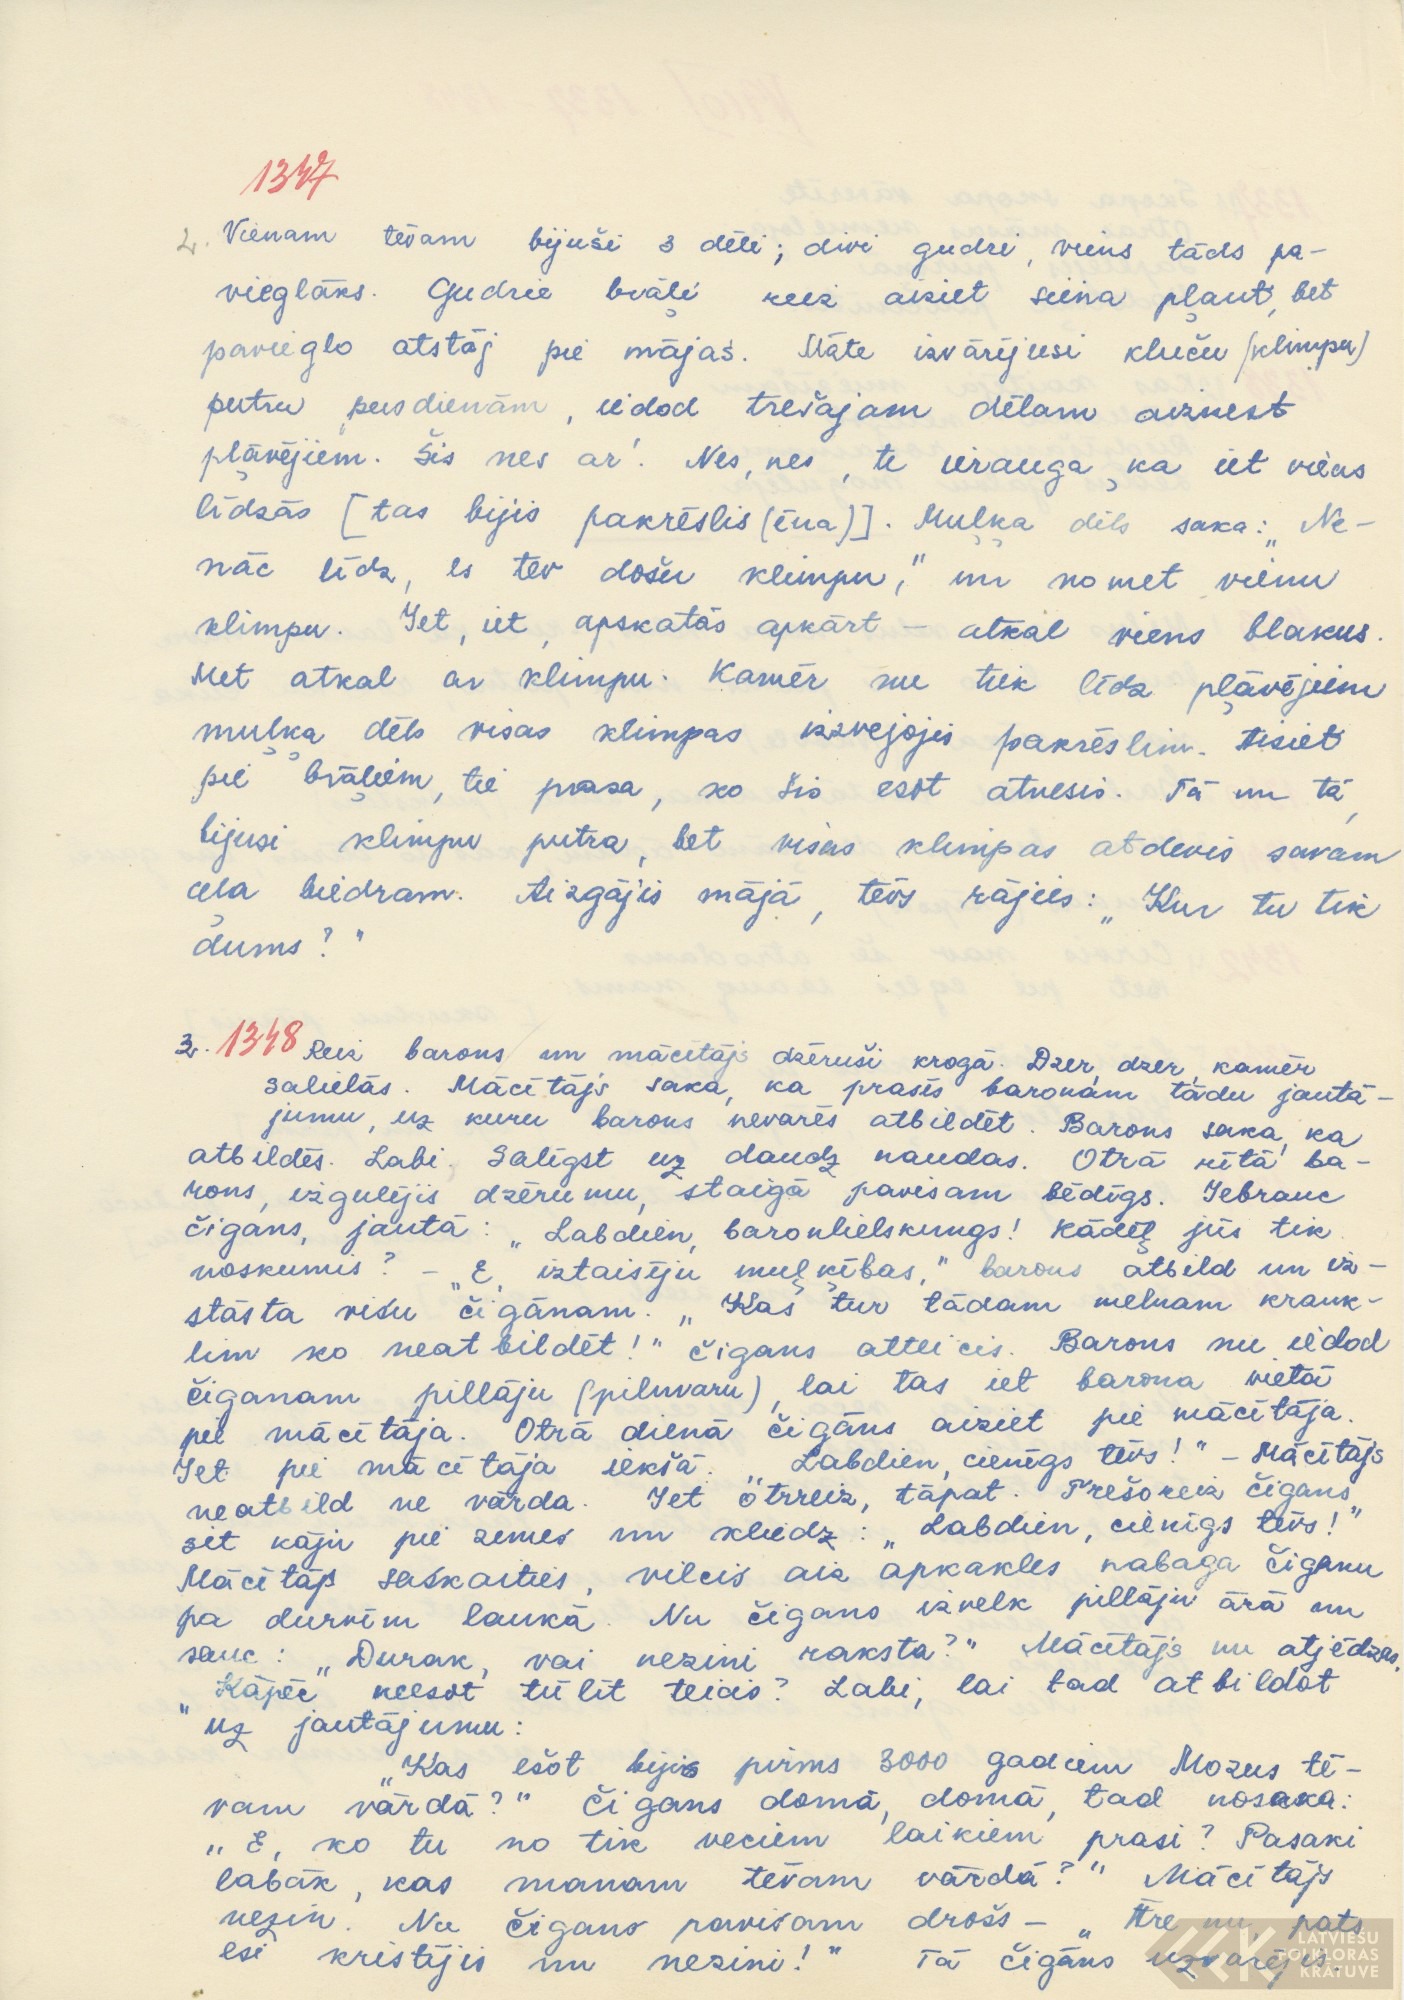 1347
2. Vienam tēvam bijuši 3 dēli; divi gudri, viens tāds pa-
vieglāks. Gudrie brāļi reiz aiziet siena pļaut, bet
pavieglo atstāj pie mājas. Māte izvārījusi kluču (klimpu)
putru pusdienām, iedod trešajam dēlam aiznest
pļāvējiem. Šis nes ar'. Nes, nes, te ierauga, ka iet viens
līdzās [tas bijis pakrēslis (ēna)]. Muļķa dēls saka: „Ne-
nāc līdz, es tev došu klimpu," un nomet vienu
klimpu. Iet, iet, apskatās apkārt – atkal viens blakus.
Met atkal ar klimpu. Kamēr nu tiek līdz pļāvējiem
muļķa dēls visas klimpas izsvejojis pakrēslim. Aiziet
pie brāļiem, tie prasa, ko šis esot atnesis. Tā un tā,
bijusi klimpu putra, bet visas klimpas atdevis savam
ceļa biedram. Aizgājis mājā, tēvs rājies: „Kur tu tik
dums?"
3. 1348 Reiz barons un mācītājs dzēruši krogā. Dzer, dzer, kamēr
salielās. Mācītājs saka, ka prasīs baronam tādu jautā-
jumu, uz kuru barons nevarēs atbildēt. Barons saka, ka
atbildēs. Labi. Salīgst uz daudz naudas. Otrā rītā ba-
rons, izgulējis dzērumu, staigā pavisam bēdīgs. Iebrauc
čigāns, jautā: „Labdien, baronlielskungs! Kādēļ jūs tik
noskumis? – „E, iztaisīju muļķības," barons atbild un iz-
stāsta visu čigānam. „Kas tur tādam melnam krauk-
lim ko neatbildēt!" čigāns atteicis. Barons nu iedod
čigānam pillāju (pilnvaru), lai tas iet barona vietā
pie mācītāja. Otrā dienā čigāns aiziet pie mācītāja.
Iet pie mācītāja iekšā. „Labdien, cienīgs tēvs!" – Mācītājs
neatbild ne vārda. Iet otrreiz, tāpat. Trešoreiz čigāns
sit kāju pie zemes un kliedz: „Labdien, cienīgs tēvs!"
Mācītājs saskaities, vilcis aiz apkakles nabaga čigānu
pa durvīm laukā. Nu čigāns izvelk pillāju ārā un
sauc: „Durak, vai nezini raksta?" Mācītājs nu atjēdzas.
„Kāpēc neesot tūlīt teicis? Labi, lai tad atbildot
uz jautājumu:
„Kas ešot bijis pirms 3000 gadiem Mozus tē-
vam vārdā?" Čigāns domā, domā, tad nosaka:
„E, ko tu no tik veciem laikiem prasi? Pasaki
labāk, kas manam tēvam vārdā?" Mācītājs
nezin. Nu čigāns pavisam drošs – „Are nu, pats
esi kristījis un nezini!" Tā čigāns uzvarējis.
LATVIEŠU
FOLKLORAS
KRĀTUVE